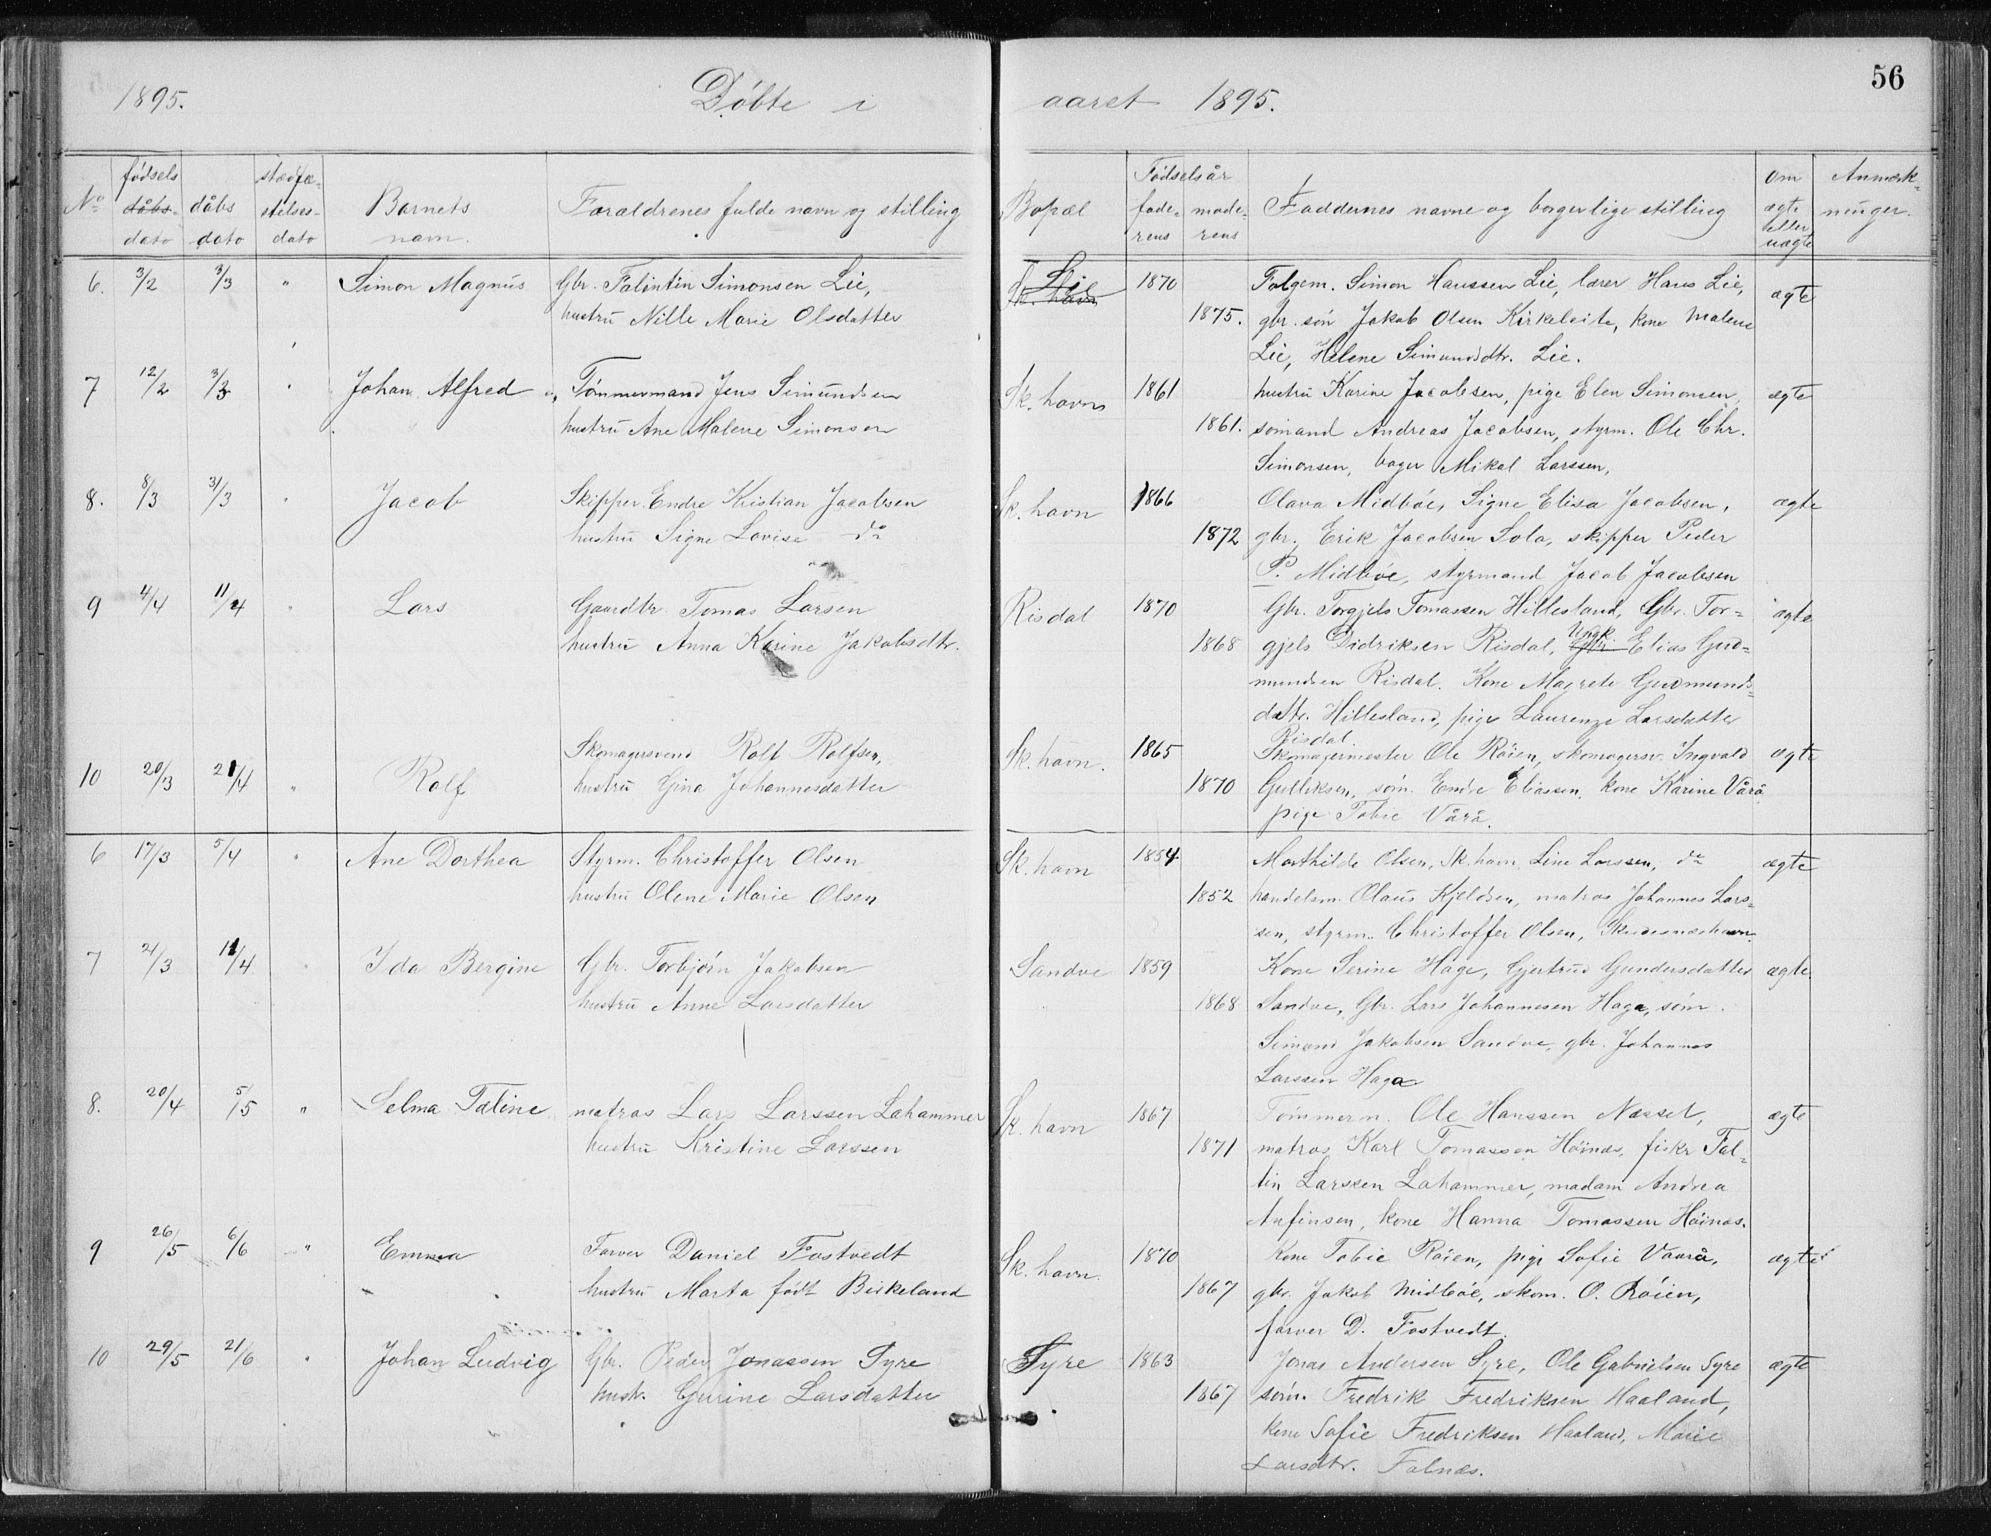 56
1895. Døbte i aaret 1895.
No fødsels dåbs- dato dåbs dato stadfæ- stelses- dato Barnets navn. Forældrenes fulde navn og stilling Bopæl Fødselsår fade- rens mode- rens Faddernes navne og borgerlige stilling Om ægte eller uægte Anmærk- ninger.
6. 3/2 3/3 " Simon Magnus Gbr. Falintin Simonsen Lie, Sk. havn Lie 1870 Folgem. Simon Hanssen Lie, lærer Hans Lie, ægte
hustru Nille Marie Olsdatter 1875. gbr. søn Jakob Olsen Kirkeleite, kone Malene
Lie, Helene Simundsdtr. Lie.
7 12/2 3/3 " Johan Alfred Tømmermand Jens Simundsen Sk. havn 1861 hustru Karine Jacobsen, pige Elen Simonsen, ægte
hustru Ane Malene Simonsen 1861. sømand Andreas Jacobsen, styrm. Ole Chr.
Simonsen, bager Mikal Larssen,
8. 8/3 31/3 " Jacob Skipper Endre Kristian Jacobsen Sk. havn 1866 Olava Midbøe, Signe Elisa Jacobsen, ægte
hustru Signe Lovise do 1872 gbr. Erik Jacobsen Sola, skipper Peder
P. Midbøe, styrmand Jacob Jacobsen
9 4/4 11/4 " Lars Gaardbr. Tomas Larsen Risdal 1870 Gbr. Torgjels Tomassen Hillesland, Gbr. Tor- ægte
hustru Anna Karine Jakobsdtr. 1868 gjels Didriksen Risdal, Gbr. Ungk. Elias Gud-
mundsen Risdal. Kone Magrete Gudmunds-
datr. Hillesland, pige Laurenze Larsdatter
Risdal
10 20/3 21/4 " Rolf Skomagersvend Rolf Rolfsen, Sk. havn. 1865 Skomagermester Ole Røien, skomagersv. Ingvald ægte
hustru Gina Johannesdatter 1870 Gulliksen, søm. Endre Eliassen, kone Karine Vårå
pige Tobie Vårå.
6 17/3 5/4 " Ane Dorthea Styrm. Christoffer Olsen Sk. havn 1854 Marthilde Olsen, Sk. havn, Line Larssen, do ægte
hustru Olene Marie Olsen 1852 handelsm. Olaus Kjeldsen, matros Johannes Lars-
sen, styrm. Christoffer Olsen, Skudesneshavn.
7 21/3 11/4 " Ida Bergine Gbr. Torbjørn Jakobsen Sandve 1859 Kone Serine Hage, Gjertrud Gundersdatter ægte.
hustru Anne Larsdatter 1868 Sandve, Gbr. Lars Johannesen Haga, søm.
Simund Jakobsen Sandve, gbr. Johannes
Larssen Haga.
8. 20/4 5/5 " Selma Taline matros Lars Larssen Lahammer Sk. havn 1867 Tømmerm. Ole Hanssen Næsset, ægte
hustru Kristine Larssen 1871 matros Karl Tomassen Høinæs, fisker Fal-
tin Larssen Lahammer, madam Andrea
Anfinsen, kone Hanna Tomassen Høinæs.
9 26/5 6/6 " Emma Farver Daniel Fostvedt Sk. havn. 1870 Kone Tobie Røien, pige Sofie Vaarå, ægte
hustru Marta født Birkeland 1867 gbr. Jakob Midbøe, skom. O. Røien,
farver D. Fostvedt.
10 29/5 21/6 " Johan Ludvig Gbr. Peder Jonassen Syre Syre 1863 Jonas Andersen Syre, Ole Gabrielsen Syre ægte
hustr. Gurine Larsdatter 1867 søm. Fredrik Fredriksen Haaland,
kone Sofie Fredriksen Haaland, Marie
Larsdtr. Falnæs.